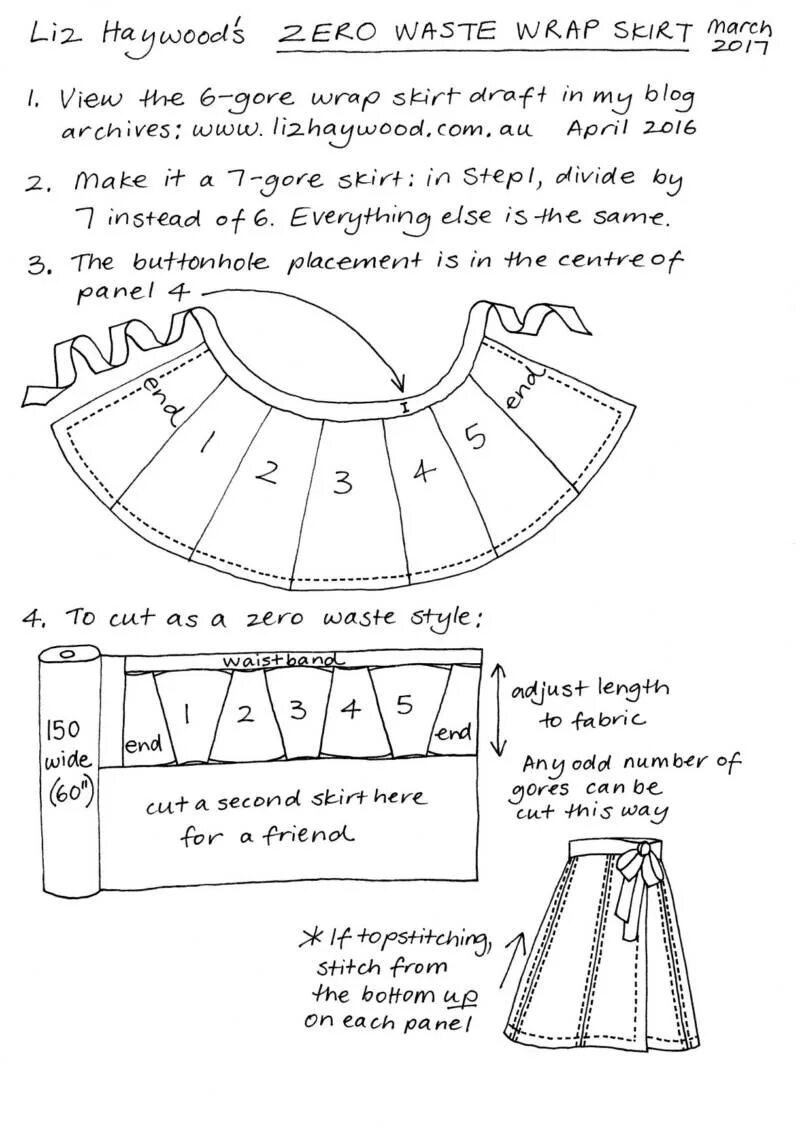 Liz Haywood's ZERO WASTE WRAP SKIRT March 2017
1. View the 6-gore wrap skirt draft in my blog
archives: www.lizhaywood.com.au April 2016
2. Make it a 7-gore skirt: in Step1, divide by
7 instead of 6. Everything else is the same.
3. The buttonhole placement is in the centre of
panel 4
I
end
1
2
3
4
5
end
4. To cut as a zero waste style:
waistband
150
wide
(60")
end
1
2
3
4
5
end
adjust length
to fabric
Any odd number of
gores can be
cut this way
cut a second skirt here
for a friend
* If topstitching,
stitch from
the bottom up
on each panel